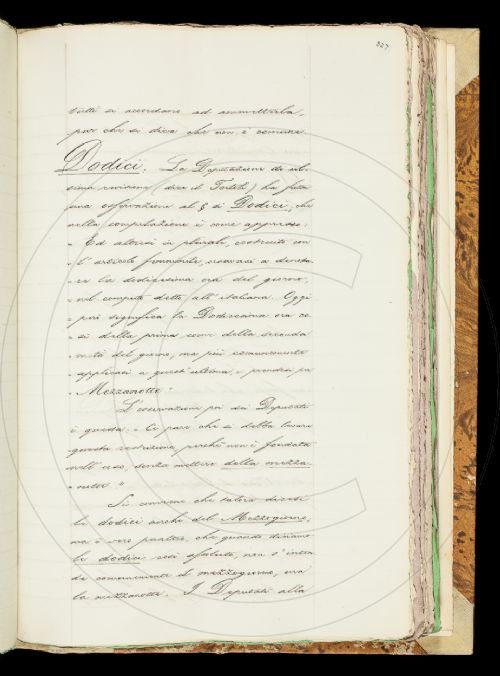 327
tutti si accordano ad ammetterla,
par che si dica che non è comune.
Dodici. La Deputazione di ul-
tima revisione (dice il Tortoli) ha fatto
una osservazione al § di Dodici, che
nella compilazione è come appresso:
" Ed altresì in plurale, costruito con
" l'articolo femminile, usavasi a denota-
" re la dodicesima ora del giorno,
" nel computo detto all'italiana. Oggi
" poi significa la Dodicesima ora co-
" sì della prima come della seconda
" metà del giorno, ma più comunemente
" applicasi a quest'ultima, e prendesi per
" Mezzanotte "
L'osservazione poi dei Deputati
è questa: " Ci pare che si debba levare
questa restrizione, perchè non è fondata
nell'uso, senza mettere della mezza-
notte "
Si conviene che talora dicesi
le dodici anche del Mezzogiorno,
ma è vero peraltro, che quando diciamo
le dodici così assoluto, non s'inten-
da comunemente il mezzogiorno, ma
la mezzanotte. I Deputati alla